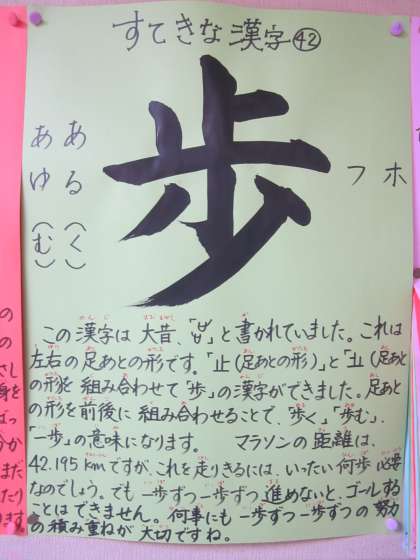 すてきな漢字㊷
歩
ホ
フ
ある(く)
あゆ(む)
この漢字は大昔、「」と書かれていました。これは
左右の足あとの形です。「止(足あとの形)」と「(足あと
の形)を組み合わせて「歩」の漢字ができました。足あと
の形を前後に組み合わせることで、「歩く」「歩む」、
「一歩」の意味になります。 マラソンの距離は、
42.195kmですが、これを走りきるには、いったい何歩必要
なのでしょう。でも一歩ずつ一歩ずつ進めないと、ゴールする
ことはできません。何事にも一歩ずつ一歩ずつの努力
の積み重ねが大切ですね。